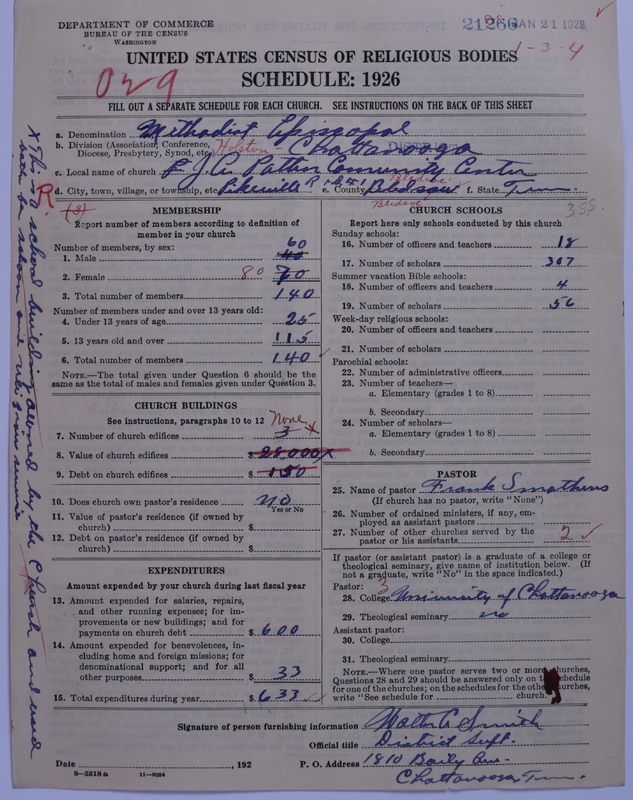 DEPARTMENT OF COMMERCE
BUREAU OF THE CENSUS
WASHINGTON
21266 JAN 21 1928
1-3-4
UNITED STATES CENSUS OF RELIGIOUS BODIES
SCHEDULE: 1926
029
FILL OUT A SEPARATE SCHEDULE FOR EACH CHURCH. SEE INSTRUCTIONS ON THE BACK OF THIS SHEET
a. Denomination Methodist Episcopal
b. Division (Association, Conference, Diocese, Presbytery, Synod, etc.) Holston - Chattanooga
c. Local name of church J. A. Patten Community Center
d. City, town, village, or township, etc. Pikeville R e. County Bledsoe f. State Tenn
Bledsoe
355
R.
(3)
MEMBERSHIP
Report number of members according to definition of
member in your church
Number of members, by sex:
1. Male 60
2. Female 80 70
3. Total number of members 140
Number of members under and over 13 years old:
4. Under 13 years of age 25
5. 13 years old and over 115
6. Total number of members 140
NOTE.—The total given under Question 6 should be
same as the total of males and females given under Question 3.
CHURCH BUILDINGS
See instructions, paragraphs 10 to 12
None
7. Number of church edifices 3 x
8. Value of church edifices $ 28,000 x
9. Debt on church edifices $ 150
10. Does church own pastor's residence no
Yes or No
11. Value of pastor's residence (if owned by
church) $
12. Debt on pastor's residence (if owned by
church) $
EXPENDITURES
Amount expended by your church during last fiscal year
13. Amount expended for salaries, repairs,
and other running expenses; for im-
provements or new buildings; and for
payments on church debt $ 600
14. Amount expended for benevolences, in-
cluding home and foreign missions; for
denominational support; and for all
other purposes $ 33
15. Total expenditures during year $ 633
CHURCH SCHOOLS
Report here only schools conducted by this church
Sunday schools:
16. Number of officers and teachers 18
17. Number of scholars 307
Summer vacation Bible schools:
18. Number of officers and teachers 4
19. Number of scholars 56
Week-day religious schools:
20. Number of officers and teachers
21. Number of scholars
Parochial schools:
22. Number of administrative officers
23. Number of teachers—
a. Elementary (grades 1 to 8)
b. Secondary
24. Number of scholars—
a. Elementary (grades 1 to 8)
b. Secondary
PASTOR
25. Name of pastor Frank Smathers
(If church has no pastor, write "None")
26. Number of ordained ministers, if any, em-
ployed as assistant pastors
27. Number of other churches served by the
pastor or his assistants 2
If pastor (or assistant pastor) is a graduate of a college or
theological seminary, give name of institution below. (If
not a graduate, write "No" in the space indicated.)
Pastor: 3
28. College University of Chattanooga
29. Theological seminary no
Assistant pastor:
30. College
31. Theological seminary
NOTE.—Where one pastor serves two or more churches,
Questions 28 and 29 should be answered only on schedule
for one of the churches; on the schedules for the other churches,
write "See schedule for church.
Signature of person furnishing information Walter A Smith
Official title District Supt.
Date , 192
P. O. Address 1810 Baily Ave.
Chattanooga Tenn.
8-5518a 11-9054
X This is a school building owned by the Church and used
both for school and religious service